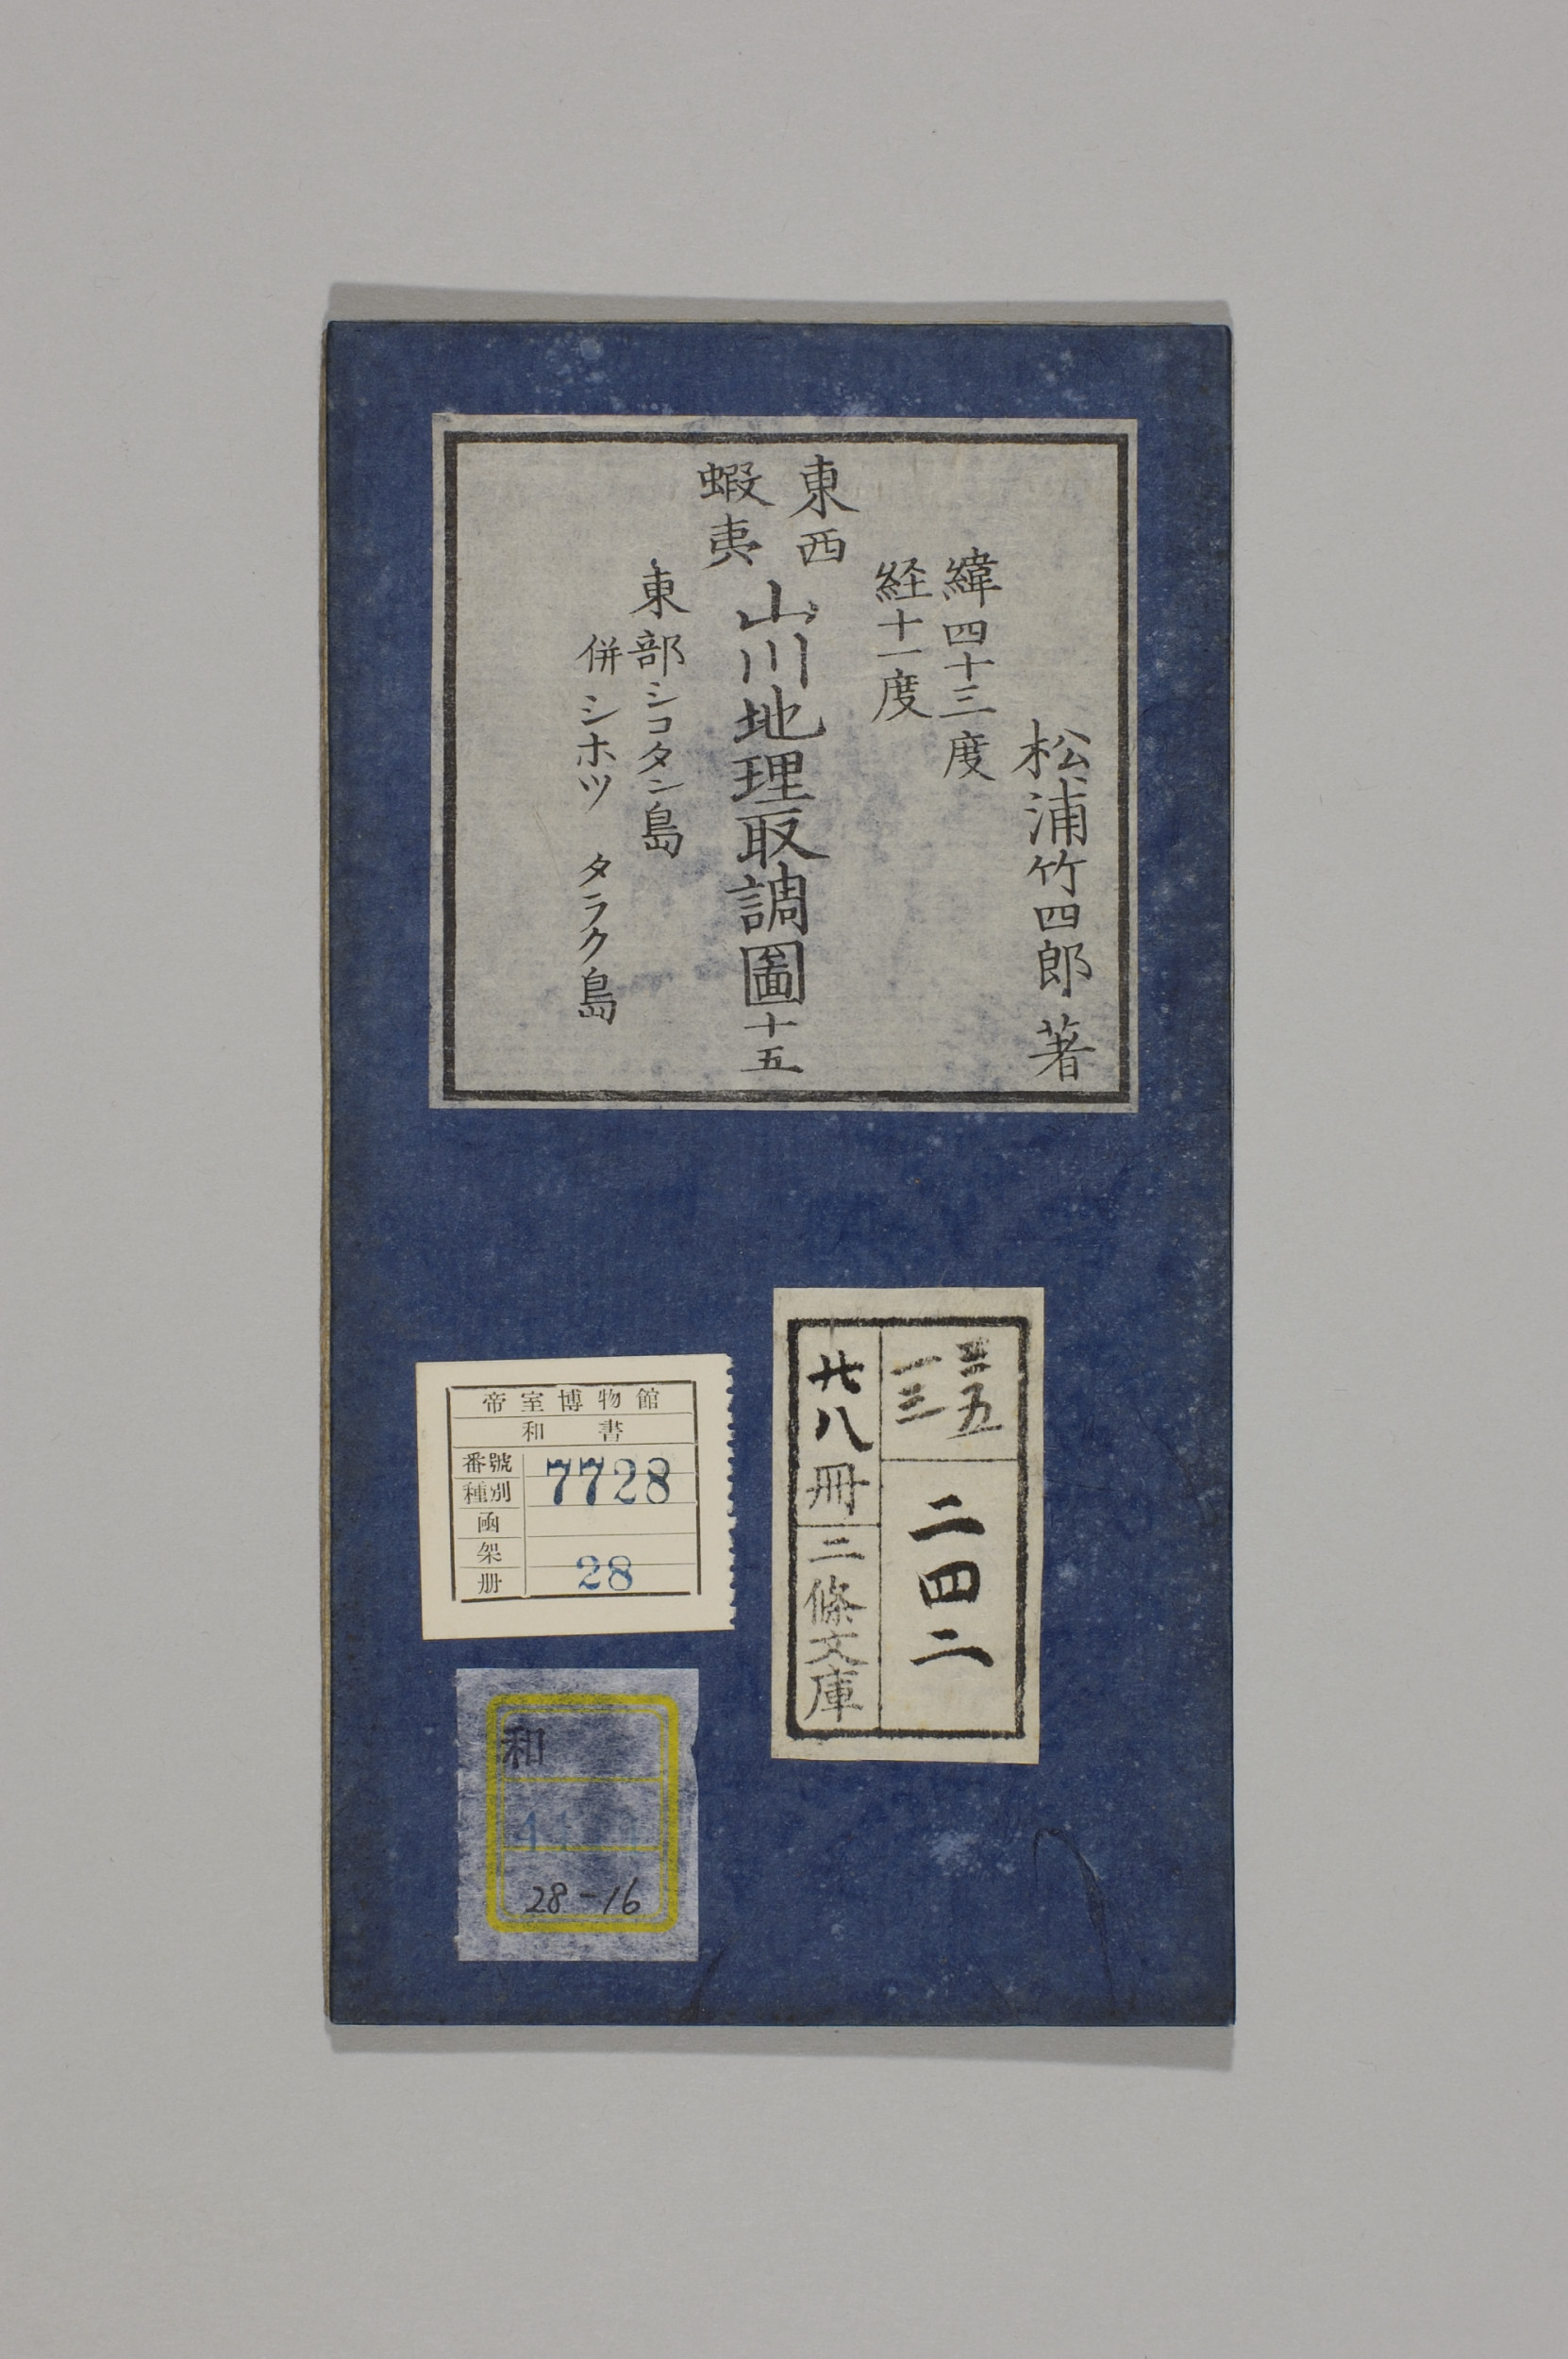 松浦竹四郎 著
緯四十三度
経十一度
東西
蝦夷
山川地理取調圖十五
東部シコタン島
併シホツ タラク島
三五
一三
二四二
廿八冊
三條文庫
帝室博物館
和書
番號 7728
種別
函
架
册 28
和
28-16